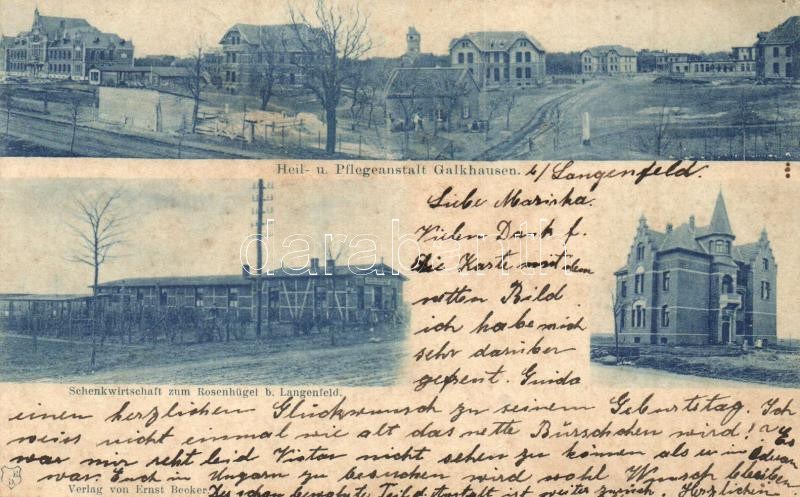 Heil- u. Pflegeanstalt Galkhausen. b/ Langenfeld.
Liebe Mariska.
Vielen Dank f.
die Karte mit dem
netten Bild
ich habe mich
sehr darüber
gefreut. Guido
Schenkwirtschaft zum Rosenhügel b. Langenfeld.
einen herzlichen Glückwunsch zu seinem Geburtstag. Ich
weiss nicht einmal wie alt das nette Bürschchen wird! Es
war mir recht leid Victor nicht sehen zu können als er in
war. Euch in Ungarn zu besuchen wird wohl Wunsch bleiben
Verlag von Ernst Becker.
Der schon bewohnte Teil d. Anstalt ist weiter zurück. Herzlichen
darabanth.com